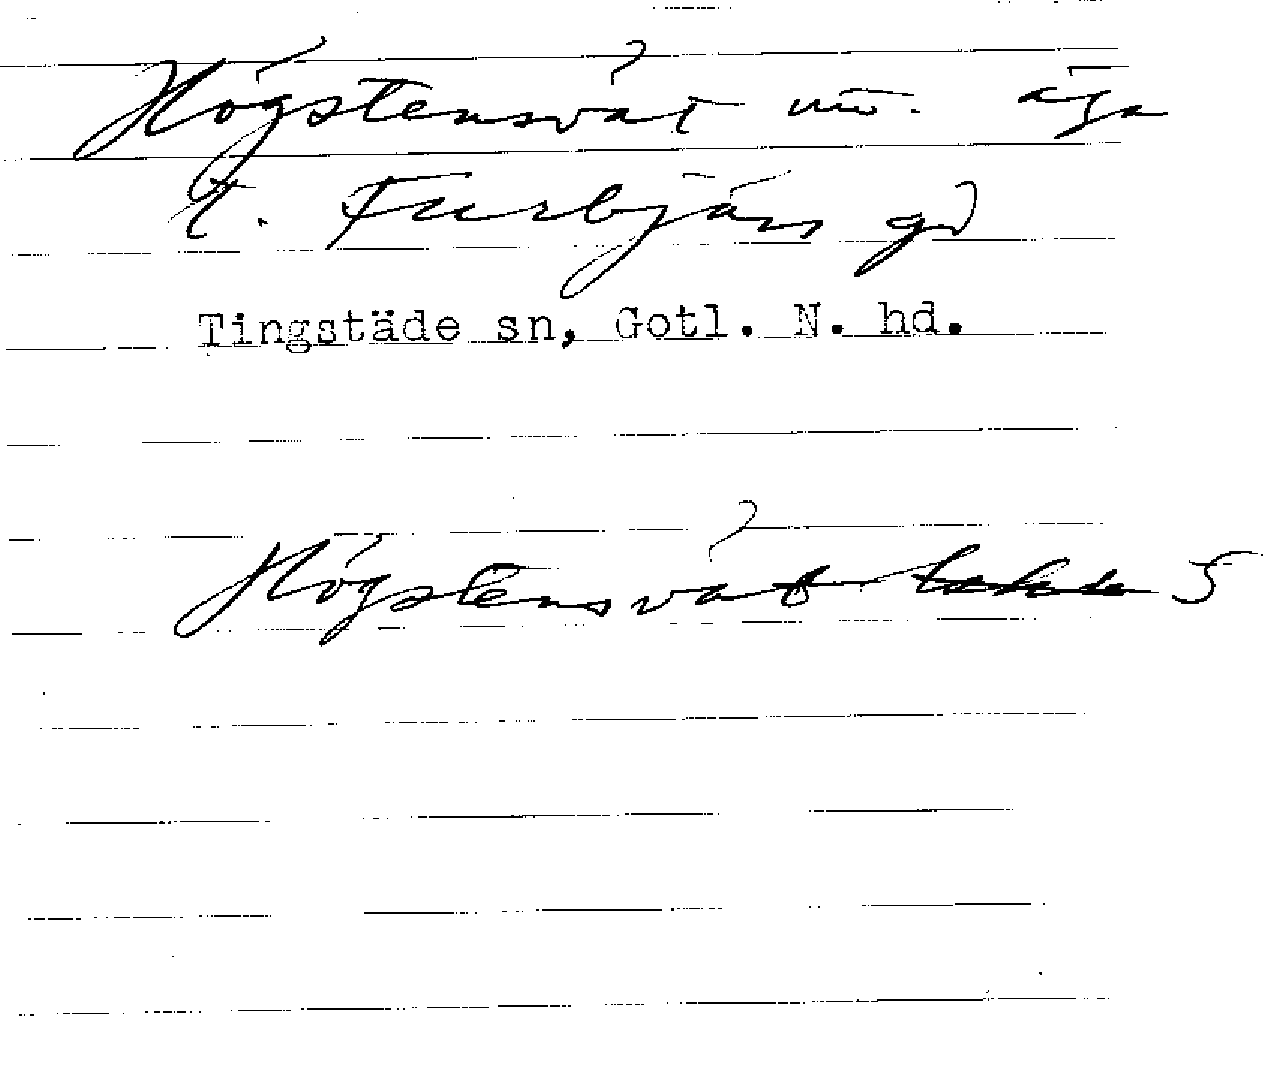 Högstensvät nu. äga
t. Furbjärs gd
Tingstäde sn, Gotl. N. hd.
Högstensvät 5